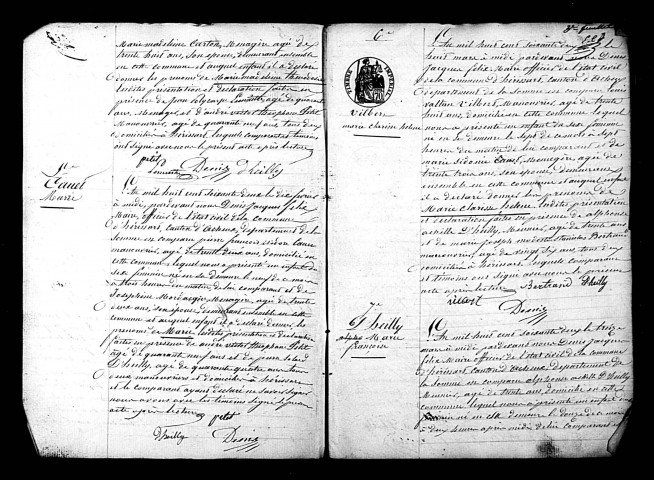 Marie madeleine Carton, Menagère agée de
trente huit ans, son épouse, demeurant ensemble
en cette commune et auquel enfant il a déclaré
donner le prénom de Marie madeleine
les dites présentation et déclaration faites en
présence de
ans, Menager, et d'andré victor théophane Petit
Manouvrier, agé de quarante neuf ans tous deux
domiciliés à hérissart, lequel comparant et temoins
ont signé avec nous le présent acte après lecture
petit
Desniz d'heilly
5e
Canel
Marie
L'an mil huit cent soixante deux le dix février
à midi pardevant nous Denis Jacques félix
Maire, officier de l'état civil de la commune
d'hérissart, canton d'acheux, département de la
Somme est comparu pierre francois isidore Canel
manouvrier, agé de trente deux ans, domicilié en
cette commune lequel nous a présenté un enfant du
sexe féminin né en sa demeure le neuf de ce mois
à onze heures du matin de lui comparant et de
Josephine Mordacq, Menagère, agée de trente
deux ans, son épouse, demeurant ensemble en cette
commune et auquel enfant il a déclaré donner le
prénom de Marie les dites présentation et déclaration
faites en présence de andré victor théophane Petit
agé de quarante neuf ans et de
D'heilly, agé de quarante quatre ans tous
deux manouvriers et domiciliés à hérissart
et le comparant ayant déclaré ne savoir signer
nous avons avec les temoins signé le présent
acte après lecture
petit
Dheilly Desniz
6e
Vilbert
marie clarisse helene
L'an mil huit cent soixante deux le huit
mars à midi pardevant nous Denis
Jacques félix Maire officier de l'état civil
de la commune d'hérissart, canton d'acheux
département de la Somme est comparu louis
Vilbert, Manouvrier, agé de trente
huit ans domicilié en cette commune lequel
nous a présenté un enfant du sexe féminin
né en sa demeure le sept de ce mois à sept
heures du matin de lui comparant et de
marie sidonie Canel, Menagère, agée de
trente trois ans, son épouse, demeurant
ensemble en cette commune et auquel enfant
il a déclaré donner les prénoms de
Marie Clarisse helene les dites présentation
et déclaration faites en présence de alphonse
achille D'heilly, Meunier, agé de trente ans
et de marie joseph modeste Stanislas Bertrand
Manouvrier, agé de vingt six ans tous deux
domiciliés à hérissart lequel comparant
et temoins ont signé avec nous le présent
acte après lecture Bertrand Dheilly
vilbert
Desniz
7e
D'heilly
Marie
francoise
L'an mil huit cent soixante deux le treize
mars à midi pardevant nous Denis Jacques
félix Maire officier de l'état civil de la commune
d'hérissart, canton d'acheux département de
la Somme est comparu alphonse achille D'heilly
Meunier, agé de trente ans, domicilié en cette
commune lequel nous a présenté un enfant du sexe
féminin né en sa demeure le douze de ce mois
à deux heures après midi de lui comparant et